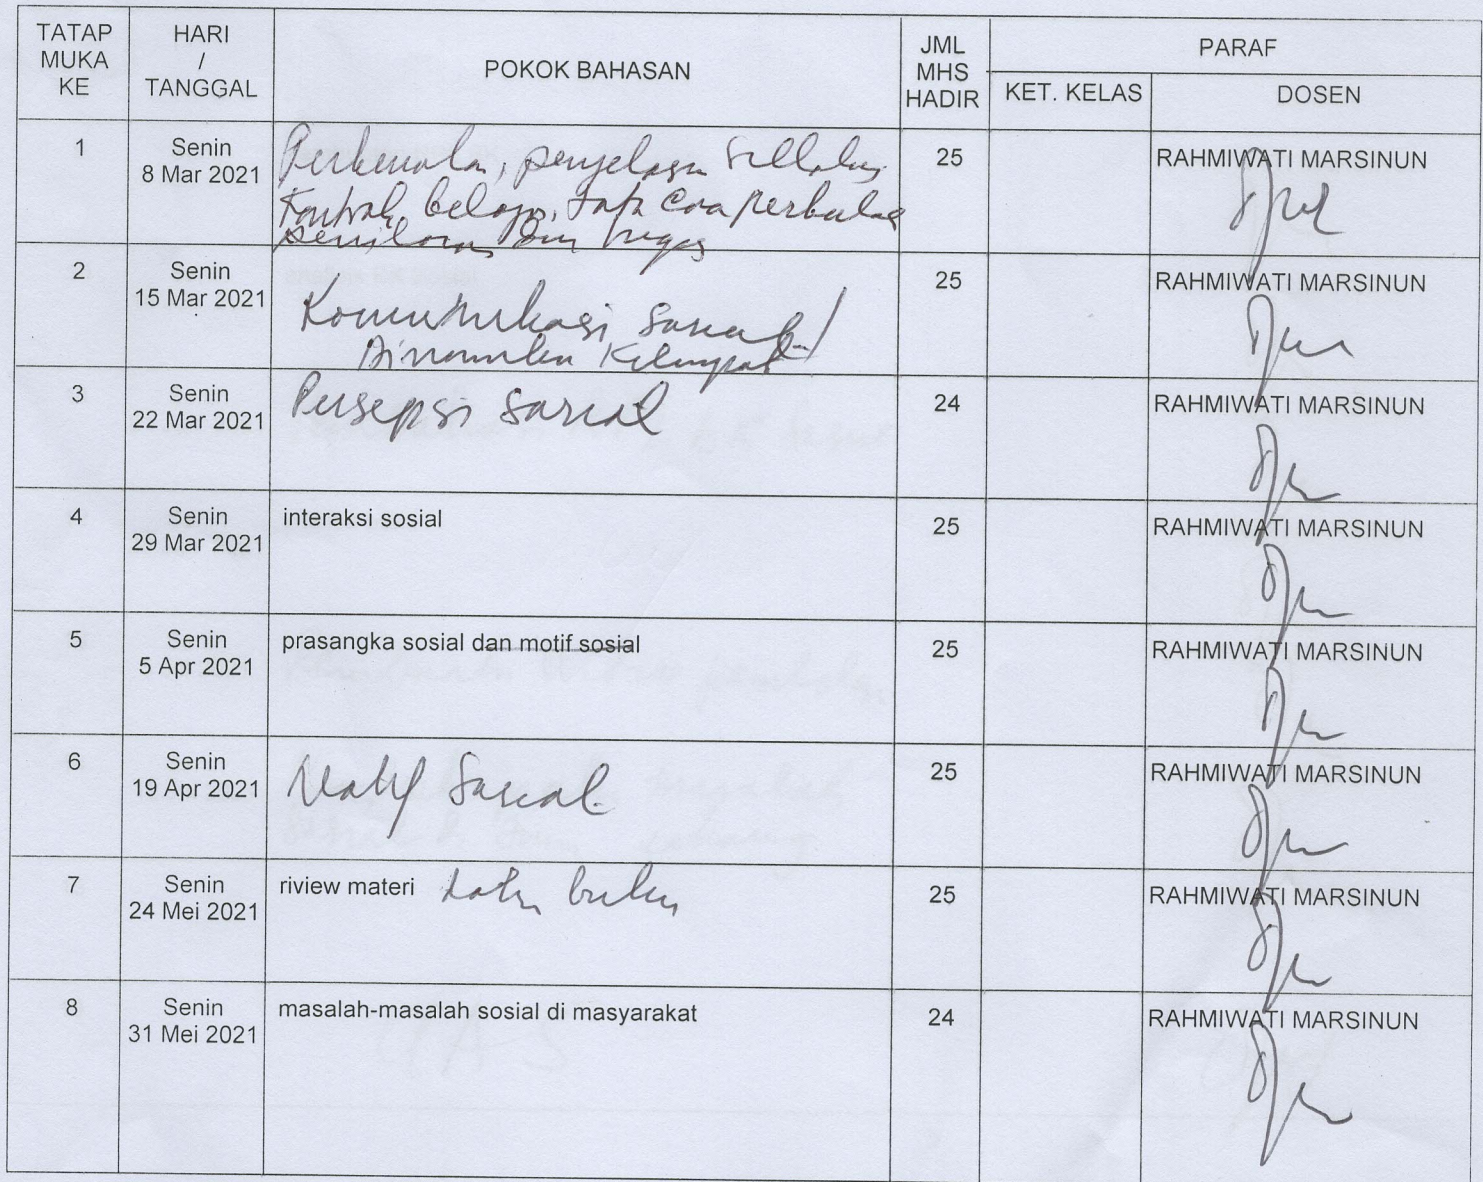 TATAP MUKA KE
HARI / TANGGAL
POKOK BAHASAN
JML MHS HADIR
PARAF
KET. KELAS
DOSEN
1
Senin
8 Mar 2021
Perkenalan, penjelasan Sillabus
Kontrak belajar, tata cara perkuliahan
penilaian dan tugas
25
RAHMIWATI MARSINUN
2
Senin
15 Mar 2021
Komunikasi Sosial /
Dinamika Kelompok
25
RAHMIWATI MARSINUN
3
Senin
22 Mar 2021
Persepsi Sosial
24
RAHMIWATI MARSINUN
4
Senin
29 Mar 2021
interaksi sosial
25
RAHMIWATI MARSINUN
5
Senin
5 Apr 2021
prasangka sosial dan motif sosial
25
RAHMIWATI MARSINUN
6
Senin
19 Apr 2021
Motif Sosial
25
RAHMIWATI MARSINUN
7
Senin
24 Mei 2021
riview materi buku
25
RAHMIWATI MARSINUN
8
Senin
31 Mei 2021
masalah-masalah sosial di masyarakat
24
RAHMIWATI MARSINUN